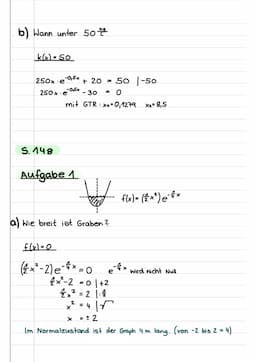 b) Wann unter 50
k(x) = 50
250x · e^-0,5x + 20 = 50 | -50
250x · e^-0,5x - 30 = 0
mit GTR: x₁=0,1279 x₂=8,5
S. 148
Aufgabe 1
f(x) = (½x²) e
a) Wie breit ist Graben?
f(x) = 0
(½x²-2) e = 0 e wird nicht Null
½x²-2 = 0 | +2
½x² = 2
x² = 4 | √
x = ±2
Im Normalzustand ist der Graph 4m lang. (von -2 bis 2 = 4)